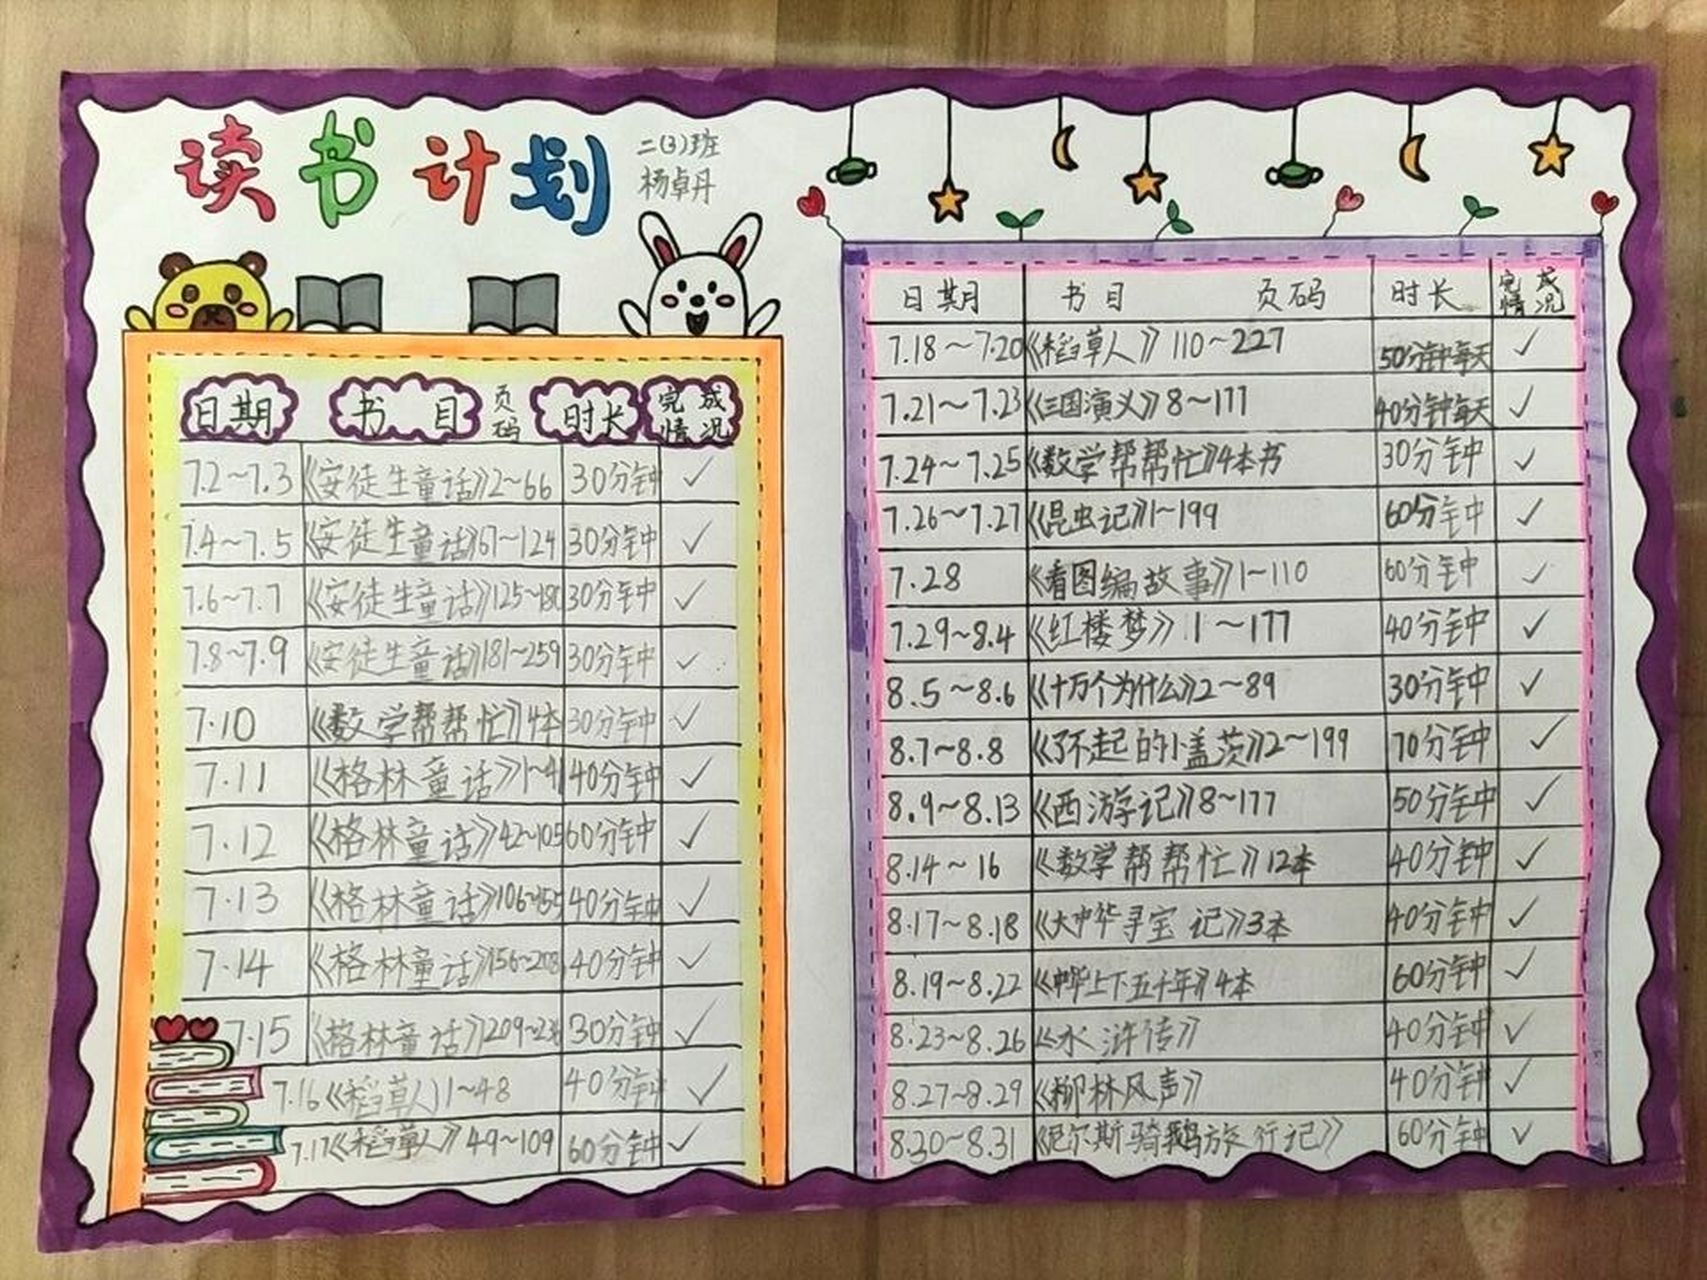 读书计划
二(3)班
杨卓丹
日期 书目 页码 时长 完成情况
7.2~7.3 《安徒生童话》2~66 30分钟 ✓
7.4~7.5 《安徒生童话》67~124 30分钟 ✓
7.6~7.7 《安徒生童话》125~180 30分钟 ✓
7.8~7.9 《安徒生童话》181~259 30分钟 ✓
7.10 《数学帮帮忙》4本 30分钟 ✓
7.11 《格林童话》1~41 40分钟 ✓
7.12 《格林童话》42~105 60分钟 ✓
7.13 《格林童话》106~155 40分钟 ✓
7.14 《格林童话》156~208 40分钟 ✓
7.15 《格林童话》 30分钟 ✓
7.16 《稻草人》1~48 40分钟 ✓
7.17 《稻草人》49~109 60分钟 ✓
日期 书目 页码 时长 完成情况
7.18~7.20 《稻草人》110~227 50分钟每天 ✓
7.21~7.23 《三国演义》8~177 40分钟每天 ✓
7.24~7.25 《数学帮帮忙》4本书 30分钟 ✓
7.26~7.27 《昆虫记》1~199 60分钟 ✓
7.28 《看图编故事》1~110 60分钟 ✓
7.29~8.4 《红楼梦》1~177 40分钟 ✓
8.5~8.6 《十万个为什么》2~89 30分钟 ✓
8.7~8.8 《了不起的小盖茨》2~199 70分钟 ✓
8.9~8.13 《西游记》8~177 50分钟 ✓
8.14~16 《数学帮帮忙》12本 40分钟 ✓
8.17~8.18 《大中华寻宝记》3本 40分钟 ✓
8.19~8.22 《中华上下五千年》4本 60分钟 ✓
8.23~8.26 《水浒传》 40分钟 ✓
8.27~8.29 《柳林风声》 40分钟 ✓
8.30~8.31 《尼尔斯骑鹅旅行记》 60分钟 ✓